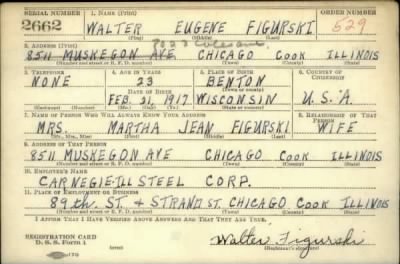 SERIAL NUMBER 1. NAME (Print) ORDER NUMBER
2662 WALTER EUGENE FIGURSKI 529
(First) (Middle) (Last)
2. ADDRESS (Print)
8511 MUSKEGON AVE CHICAGO COOK ILLINOIS
(Number and street or R. F. D. number) (Town) (County) (State)
3. TELEPHONE 4. AGE IN YEARS 5. PLACE OF BIRTH 6. COUNTRY OF CITIZENSHIP
NONE 23 BENTON
(Town or county)
DATE OF BIRTH
FEB 21, 1917 WISCONSIN U.S.A.
(Exchange) (Number) (Mo.) (Day) (Yr.) (State or country)
7. NAME OF PERSON WHO WILL ALWAYS KNOW YOUR ADDRESS 8. RELATIONSHIP OF THAT PERSON
MRS. MARTHA JEAN FIGURSKI WIFE
(Mr., Mrs., Miss) (First) (Middle) (Last)
9. ADDRESS OF THAT PERSON
8511 MUSKEGON AVE CHICAGO COOK ILLINOIS
(Number and street or R. F. D. number) (Town) (County) (State)
10. EMPLOYER'S NAME
CARNEGIE-ILL STEEL CORP.
11. PLACE OF EMPLOYMENT OR BUSINESS
89th ST. & STRAND ST. CHICAGO COOK ILLINOIS
(Number and street or R. F. D. number) (Town) (County) (State)
I AFFIRM THAT I HAVE VERIFIED ABOVE ANSWERS AND THAT THEY ARE TRUE.
REGISTRATION CARD
D. S. S. Form 1 Walter Figurski
(Registrant's signature)